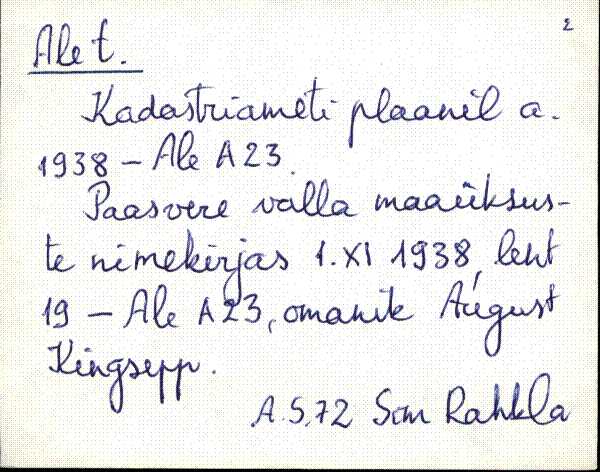 2
Ale t.
Kadastriameti plaanil a.
1938 – Ale A 23.
Paasvere valla maaüksus-
te nimekirjas 1.XI 1938, leht
19 – Ale A 23, omanik August
Kingsepp.
A.S.72 Sim Rahkla